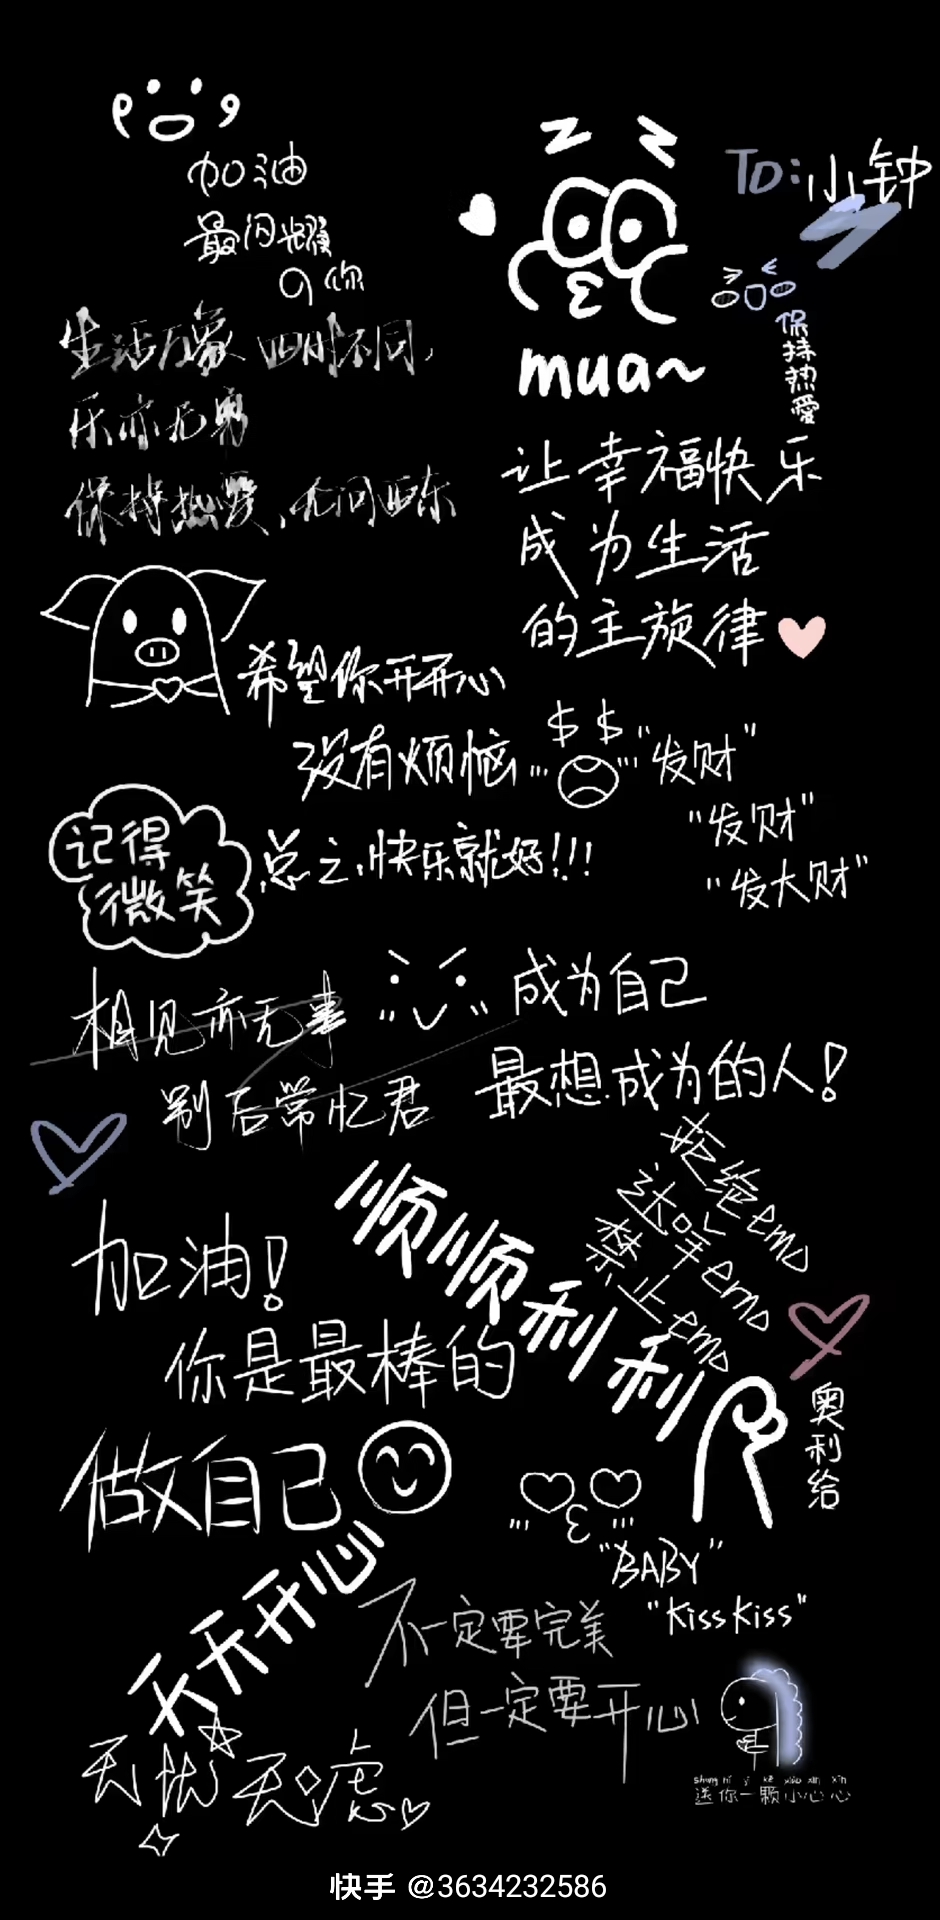 加油
最闪耀
の你
TO:小钟
mua~
保持热愛
生活万象 四时不同,
乐亦无穷
保持热爱、无问西东
让幸福快乐
成为生活
的主旋律
希望你开开心心
没有烦恼
$ $
"发财"
"发财"
"发大财"
记得
微笑
总之,快乐就好!!!
相见亦无事
别后常忆君
成为自己
最想成为的人!
拒绝emo
达咩emo
禁止emo
顺顺利利
加油!
你是最棒的
奥利给
做自己
天天开心
"BABY"
"kiss kiss"
不一定要完美
但一定要开心
无忧无虑
sòng nǐ yì kē xiǎo xīn xīn
送你一颗小心心
快手 @3634232586